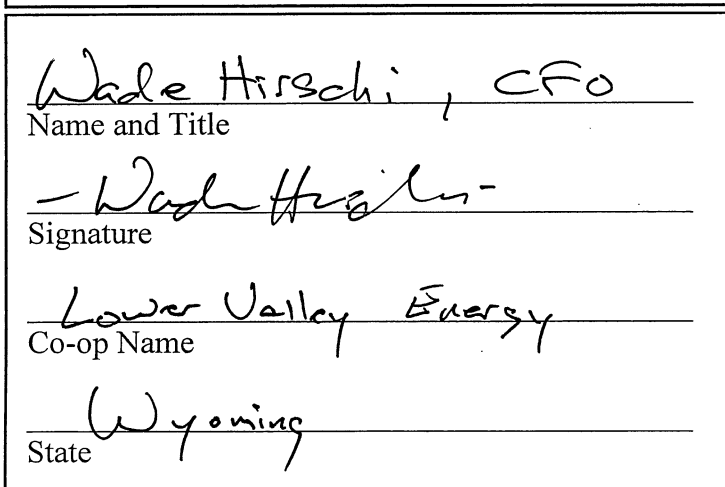 Wade Hirschi, CFO
Name and Title
Signature
Lower Valley Energy
Co-op Name
Wyoming
State